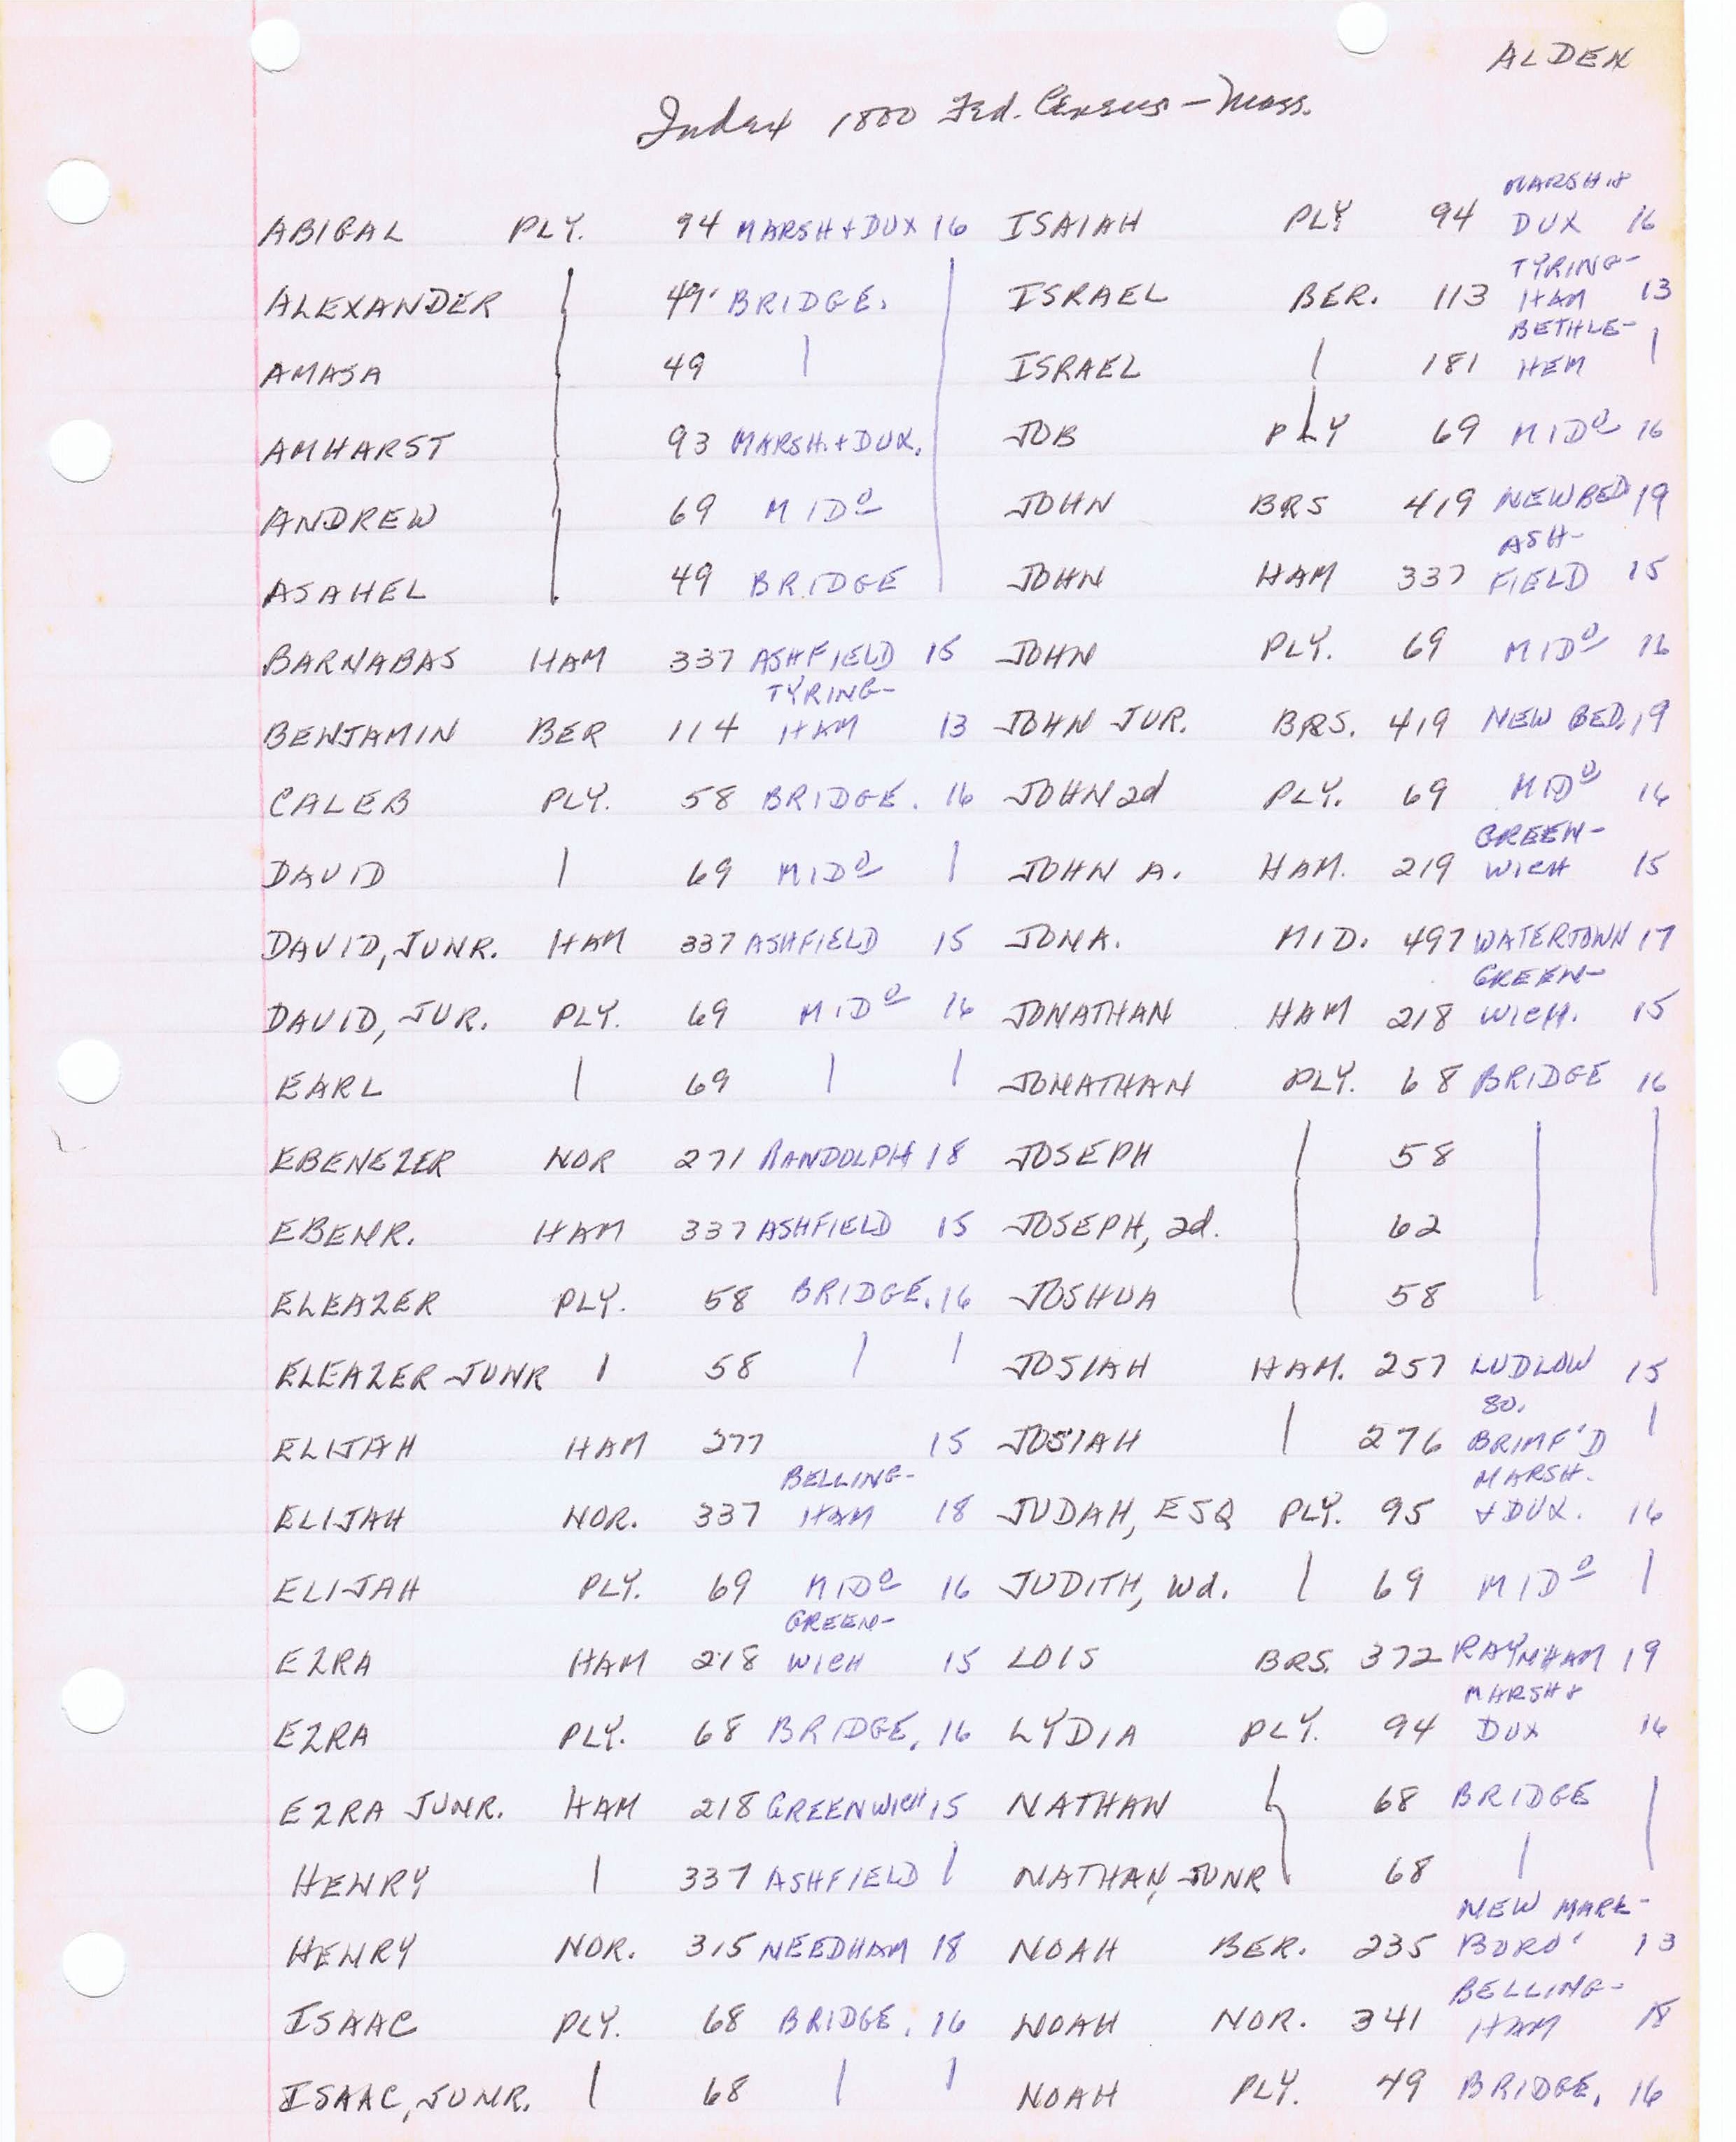 ALDEN
Index 1800 Fed. Census – Mass.
ABIGAL PLY. 94 MARSH + DUX 16 ISAIAH PLY 94 MARSH & DUX 16
ALEXANDER 49 BRIDGE. ISRAEL BER. 113 TYRING-HAM 13
AMASA 49 ISRAEL 181 BETHLE-HEM
AMHARST 93 MARSH. + DUX. JOB PLY 69 MIDº 16
ANDREW 69 MIDº JOHN BRS 419 NEW BED 19
ASAHEL 49 BRIDGE JOHN HAM 337 ASH-FIELD 15
BARNABAS HAM 337 ASHFIELD 15 JOHN PLY. 69 MIDº 16
BENJAMIN BER 114 TYRING-HAM 13 JOHN JUR. BRS. 419 NEW BED. 19
CALEB PLY. 58 BRIDGE. 16 JOHN 2d PLY. 69 MIDº 16
DAVID 69 MIDº JOHN A. HAM. 219 GREEN-WICH 15
DAVID, JUNR. HAM 337 ASHFIELD 15 JONA. MID. 497 WATERTOWN 17
DAVID, JUR. PLY. 69 MIDº 16 JONATHAN HAM 218 GREEN-WICH. 15
EARL 69 JONATHAN PLY. 68 BRIDGE 16
EBENEZER NOR 271 RANDOLPH 18 JOSEPH 58
EBENR. HAM 337 ASHFIELD 15 JOSEPH, 2d. 62
ELEAZER PLY. 58 BRIDGE. 16 JOSHUA 58
ELEAZER JUNR 58 JOSIAH HAM. 257 LUDLOW 15
ELIJAH HAM 277 15 JOSIAH 276 SO. BRIMF'D
ELIJAH NOR. 337 BELLING-HAM 18 JUDAH, ESQ PLY. 95 MARSH. + DUX. 16
ELIJAH PLY. 69 MIDº 16 JUDITH, Wd. 69 MIDº
EZRA HAM 218 GREEN-WICH 15 LOIS BRS. 372 RAYNHAM 19
EZRA PLY. 68 BRIDGE. 16 LYDIA PLY. 94 MARSH & DUX 16
EZRA JUNR. HAM 218 GREENWICH 15 NATHAN 68 BRIDGE
HENRY 337 ASHFIELD NATHAN, JUNR 68
HENRY NOR. 315 NEEDHAM 18 NOAH BER. 235 NEW MARL-BORO' 13
ISAAC PLY. 68 BRIDGE. 16 NOAH NOR. 341 BELLING-HAM 18
ISAAC, JUNR. 68 NOAH PLY. 49 BRIDGE. 16